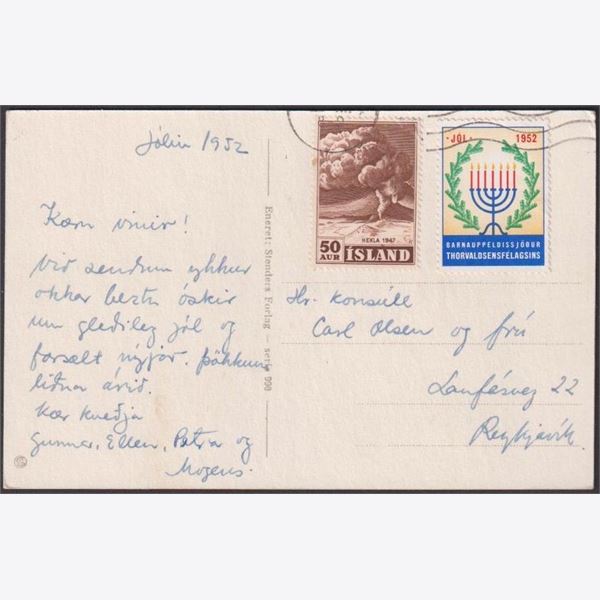 Jólin 1952
Kæru vinir!
Við sendum ykkur
okkar beztu óskir
um gleðileg jól og
farsælt nýjár. þökkum
liðna árið.
Kær kveðja
Gunnar, Ellen, Petra og
Mogens.
Eneret: Stenders Forlag — serie 990
50
AUR
HEKLA 1947
ÍSLAND
·JÓL· 1952
BARNAUPPELDISSJÓÐUR
THORVALDSENSFÉLAGSINS
Hr. Konsúll
Carl Olsen og frú
Laufásveg 22
Reykjavík.